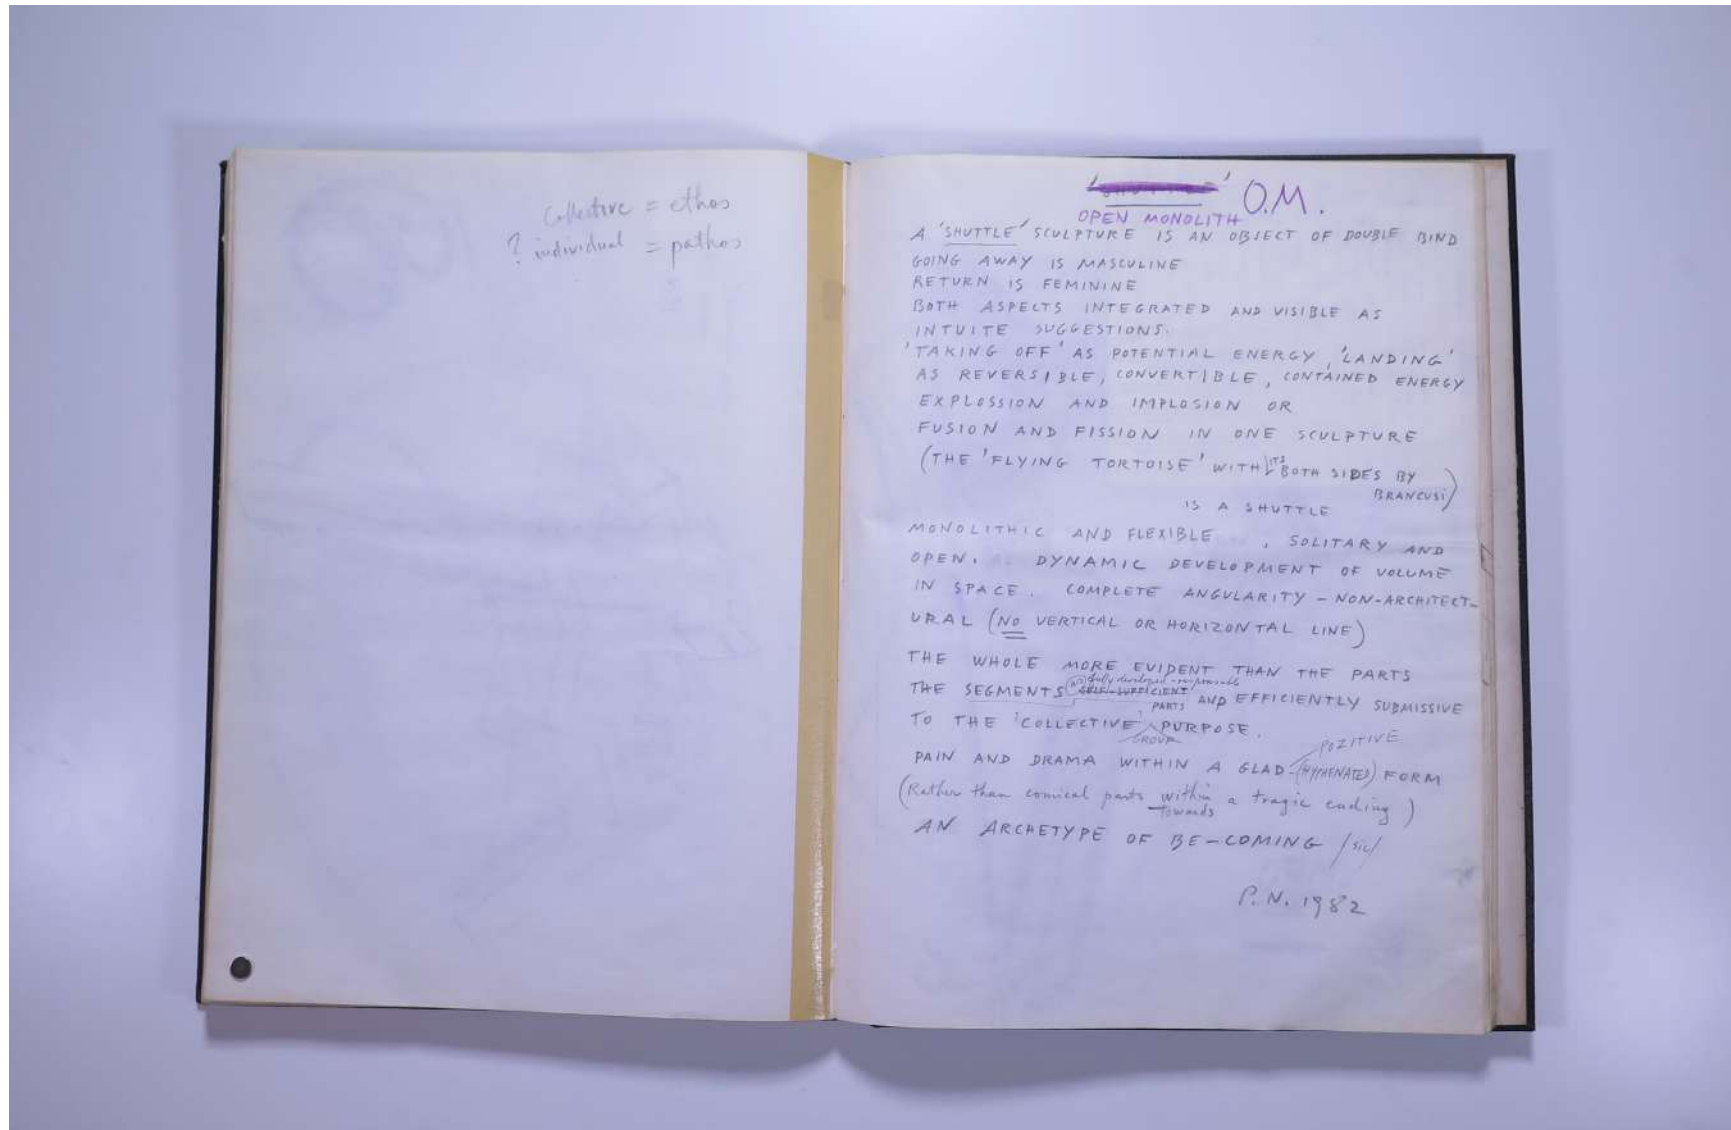 Collective = ethos
? individual = pathos
'SHUTTLE' O.M.
OPEN MONOLITH
A 'SHUTTLE' SCULPTURE IS AN OBJECT OF DOUBLE BIND
GOING AWAY IS MASCULINE
RETURN IS FEMININE
BOTH ASPECTS INTEGRATED AND VISIBLE AS
INTUITE SUGGESTIONS.
'TAKING OFF' AS POTENTIAL ENERGY, 'LANDING'
AS REVERSIBLE, CONVERTIBLE, CONTAINED ENERGY
EXPLOSSION AND IMPLOSION OR
FUSION AND FISSION IN ONE SCULPTURE
(THE 'FLYING TORTOISE' WITH ITS BOTH SIDES BY
BRANCUSI)
IS A SHUTTLE
MONOLITHIC AND FLEXIBLE , SOLITARY AND
OPEN. DYNAMIC DEVELOPMENT OF VOLUME
IN SPACE. COMPLETE ANGULARITY - NON-ARCHITECT-
URAL (NO VERTICAL OR HORIZONTAL LINE)
THE WHOLE MORE EVIDENT THAN THE PARTS
fully developed - responsable
THE SEGMENTS SELF-SUFFICIENT AND EFFICIENTLY SUBMISSIVE
PARTS
TO THE 'COLLECTIVE' PURPOSE.
GROUP
POZITIVE
PAIN AND DRAMA WITHIN A GLAD-(HYPHENATED) FORM
(Rather than comical parts within a tragic ending)
towards
AN ARCHETYPE OF BE-COMING /sic/
P.N. 1982